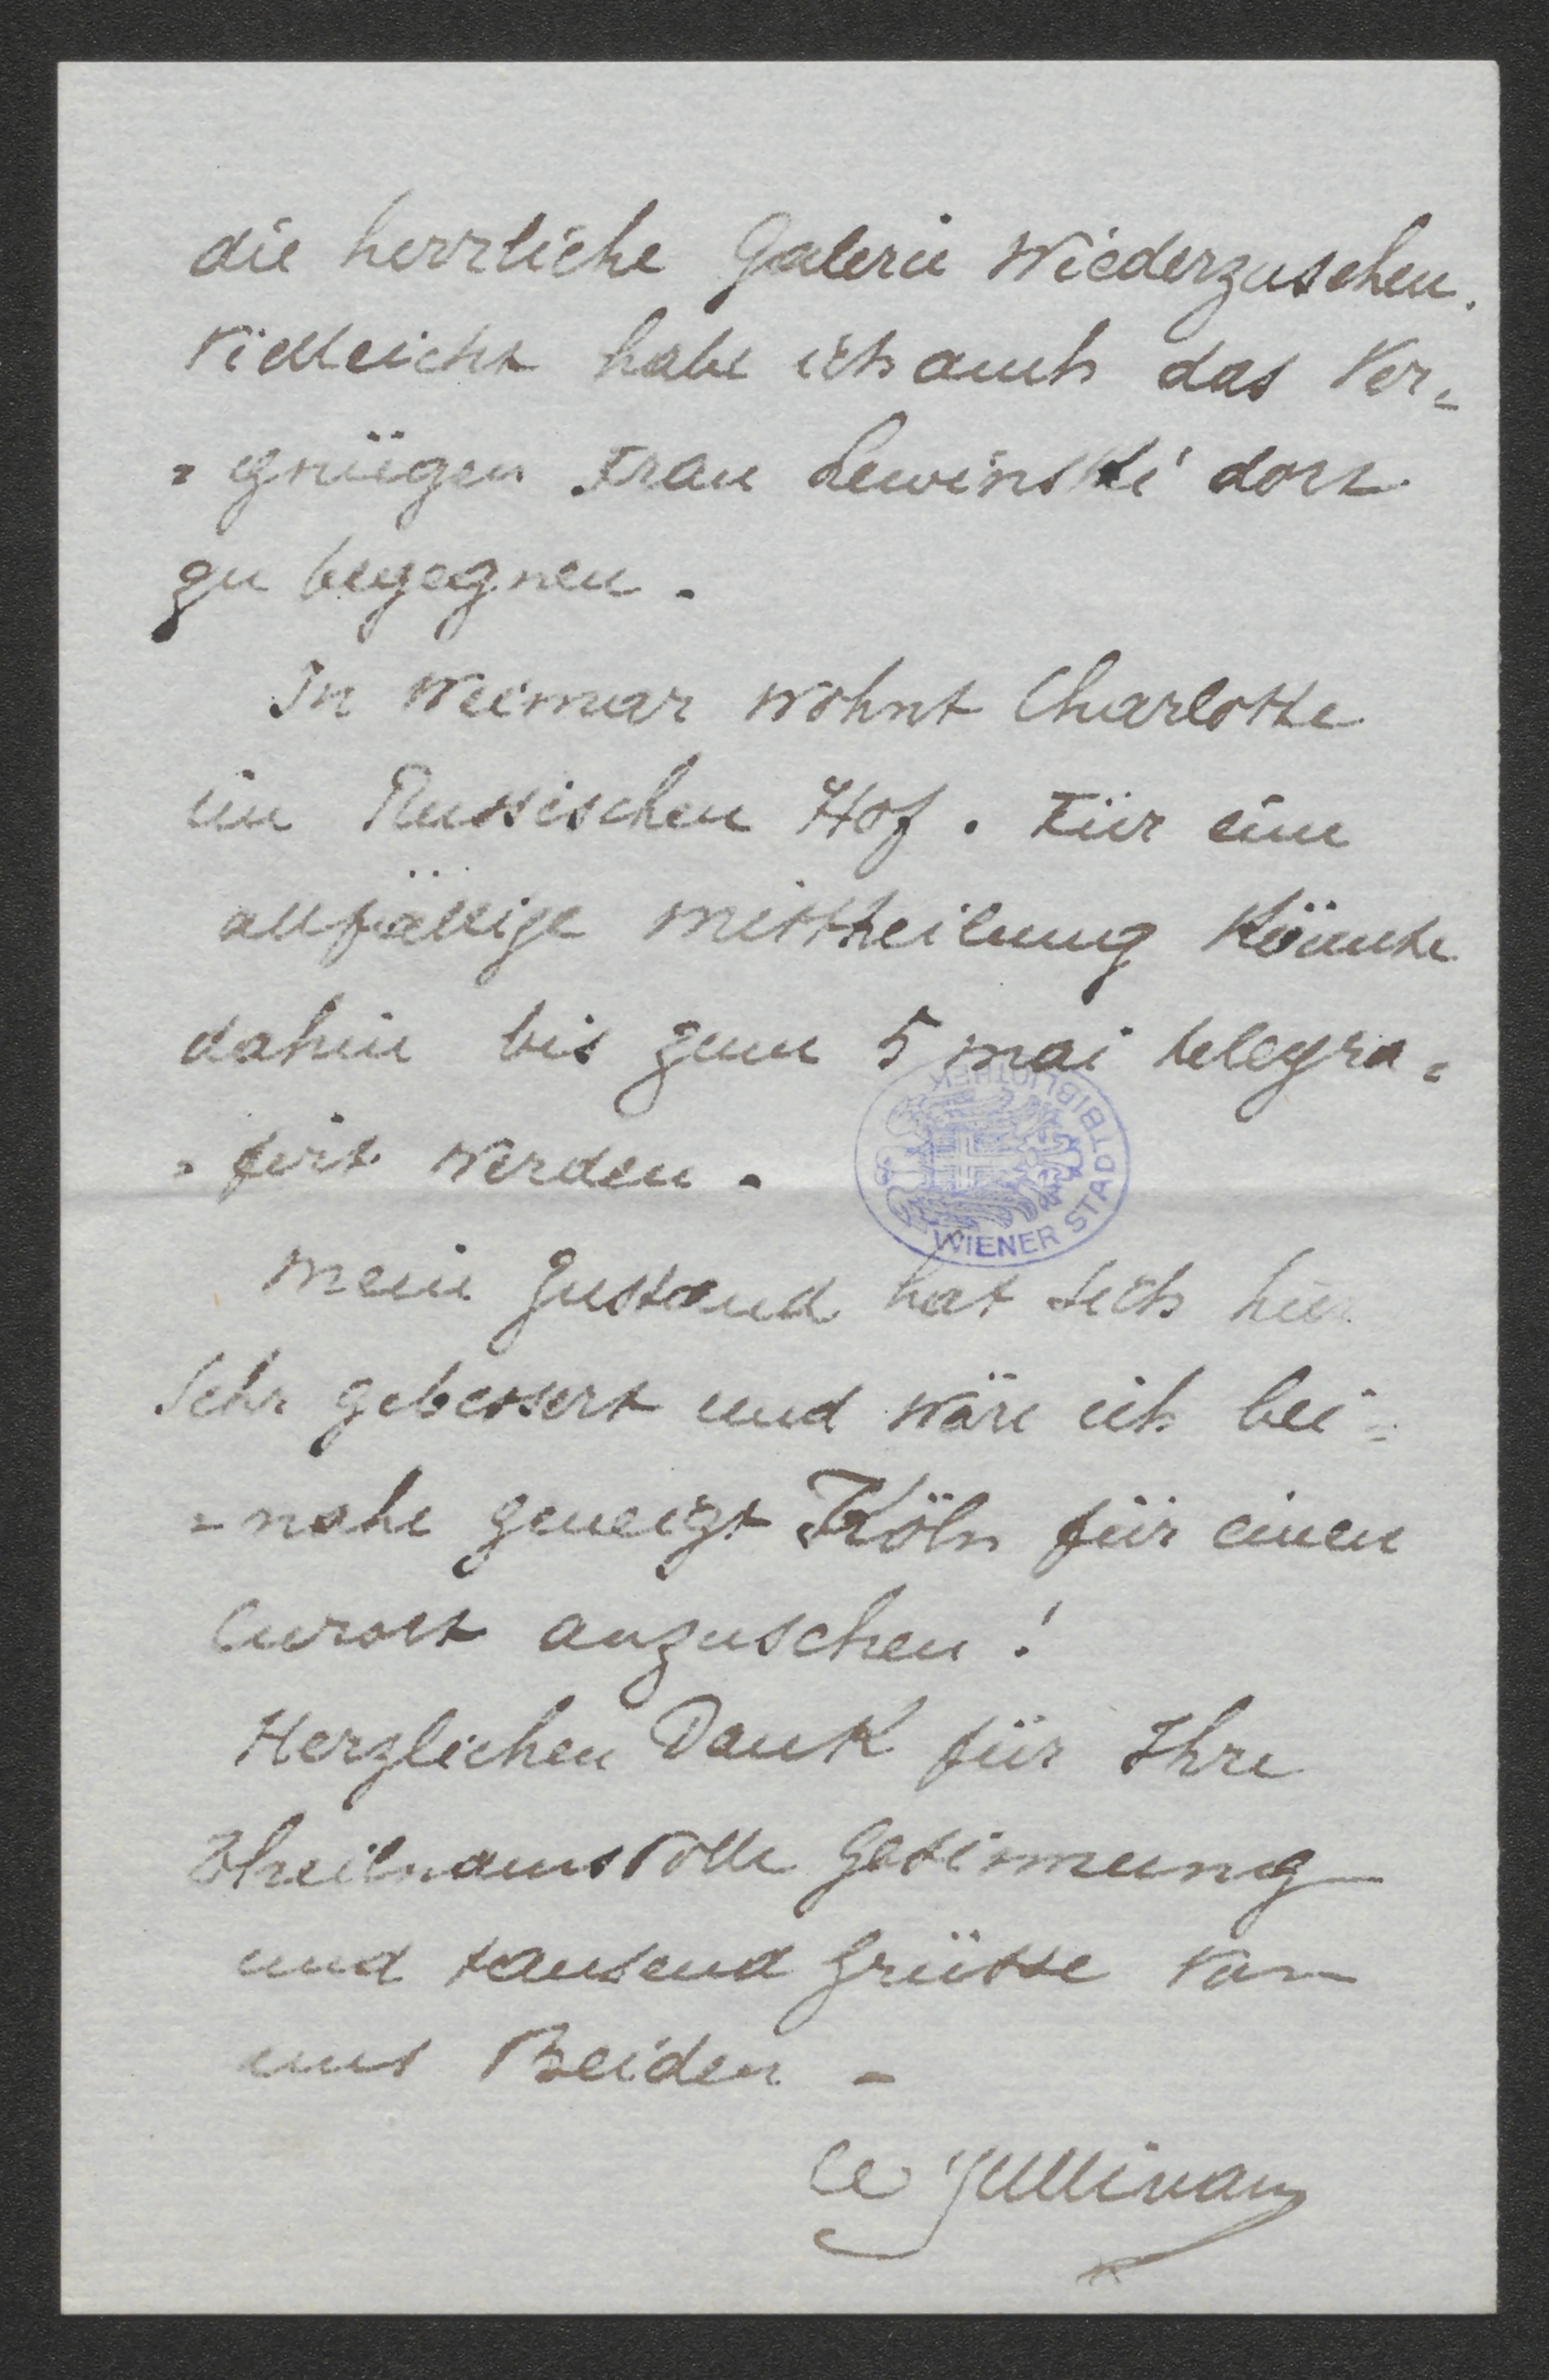 die herrliche Galerie Wiederzusehen.
Vielleicht habe ich auch das Ver=
=gnügen Frau Lewinski dort
zu begegnen.
In Weimar wohnt Charlotte
im Russischen Hof. Für eine
allfällige Mittheilung Könnte
dahin bis zum 5 mai telegra=
=firt werden.
WIENER STADTBIBLIOTHEK
Mein Zustand hat sich hier
Sehr gebessert und wäre ich bei=
=nahe geneigt Köln für einen
Curort anzusehen!
Herzlichen Dank für Ihre
Theilnamsvolle Gesinnung
und tausend Grüsse von
uns Beiden -
CW Sullivan